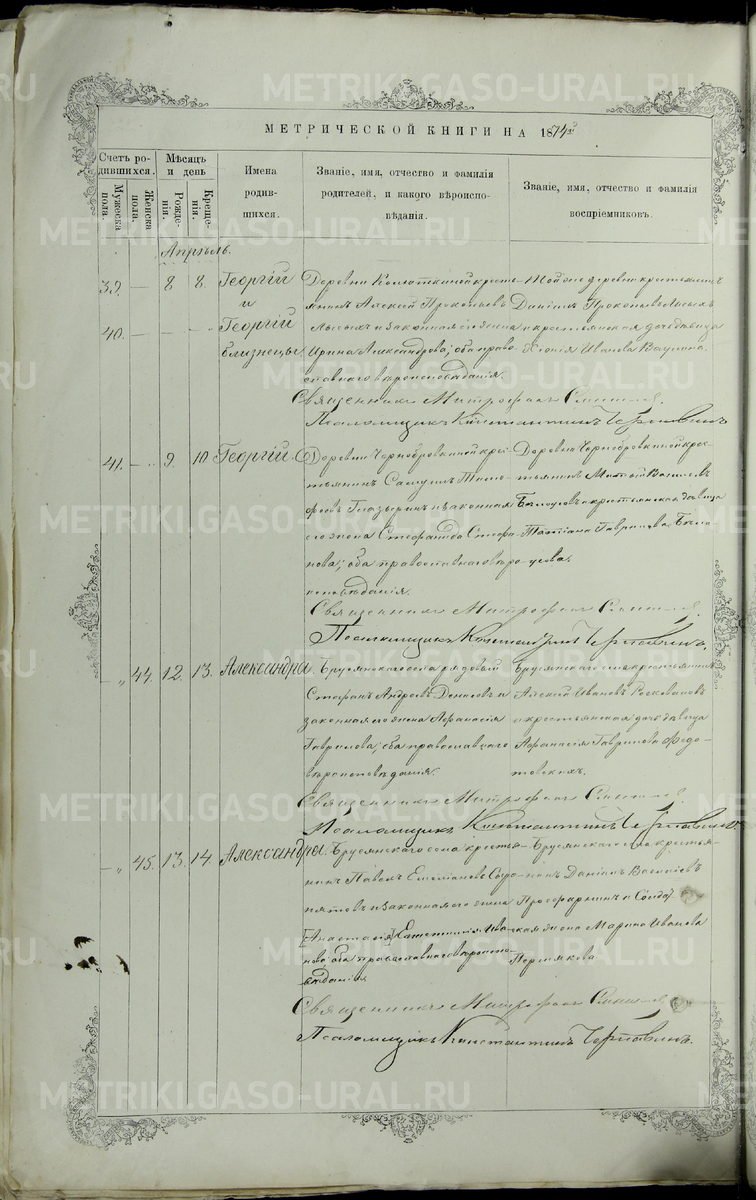 МЕТРИЧЕСКОЙ КНИГИ НА 1874й
Счетъ ро-
дившихся.
Мужеска
пола.
Женска
пола.
Мѣсяцъ
и день
Рожде-
нія.
Креще-
нія.
Имена
родив-
шихся.
Званіе, имя, отчество и фамилія
родителей, и какого вѣроиспо-
вѣданія.
Званіе, имя, отчество и фамилія
воспріемниковъ.
Апрѣль.
39. — 8 8. Георгій
и
40. — Георгій
Близнецы.
Деревни крестья-
янинъ Алексѣй Прокопьевъ
Лысыхъ и законная его жена
Ирина Александрова; оба право-
славнаго вѣроисповѣданія.
Той же деревни крестьянинъ
Даніилъ Прокопьевъ Лысыхъ
и крестьянская дочь дѣвица
Ксенія Иванова Ваулина.
Священникъ Митрофанъ
Псаломщикъ Константинъ Чернавинъ
41. — 9. 10. Георгій
Деревни Чернобровкиной кре-
стьянинъ Самуилъ
Глазыринъ и законная
его жена Стефанида Стефа-
нова; оба православнаго вѣро-
исповѣданія.
Деревни Чернобровкиной крес-
тьянинъ Василевъ
Бѣлоусовъ и крестьянская дѣвица
Татіана Гаврилова Бѣло-
усова.
Священникъ Митрофанъ
Псаломщикъ Константинъ Чернавинъ.
— „ 44. 12. 13. Александра.
Брусянскаго села рядовый
Стефанъ Андреевъ Денисовъ и
законная его жена Афанасія
Гаврилова; оба православнаго
вѣроисповѣданія.
Брусянскаго села крестьянинъ
Алексѣй Ивановъ
и крестьянская дочь дѣвица
Афанасія Гаврилова Федо-
товскихъ.
Священникъ Митрофанъ
Псаломщикъ Константинъ Чернавинъ.
— „ 45. 13. 14. Александра.
Брусянскаго села кресть-
нинъ Павелъ Емельяновъ
и законная его жена
[Анастасія] Ива-
нова; оба православнаго вѣроиспо-
вѣданія.
Брусянскаго села крестья-
нинъ Даніилъ Василіевъ
и Солдат-
ская жена Марина Иванова
Пермякова
Священникъ Митрофанъ
Псаломщикъ Константинъ Чернавинъ.
METRIKI.GASO-URAL.RU